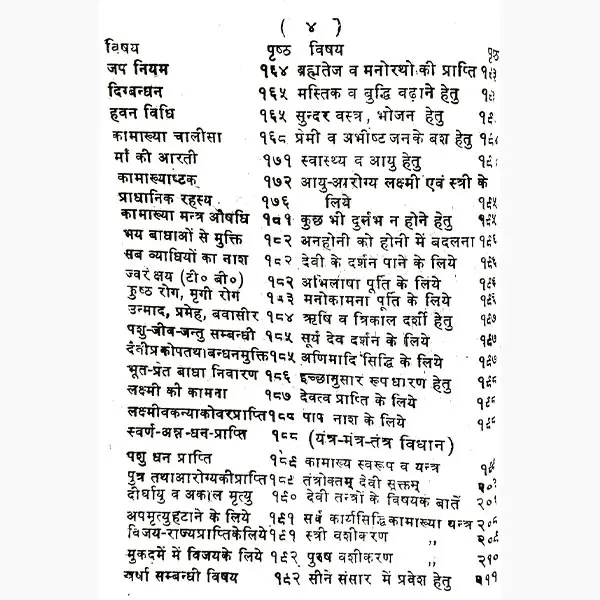 ( ४ )
विषय पृष्ठ विषय पृष्ठ
जप नियम १६४ ब्रह्मतेज व मनोरथो की प्राप्ति १९३
दिग्बन्धन १६५ मस्तिक व बुद्धि वढ़ाने हेतु
हवन विधि १६५ सुन्दर वस्त्र, भोजन हेतु
कामाख्या चालीसा १६८ प्रेमी व अभीष्ट जन के बश हेतु
माँ की आरती १७१ स्वास्थ्य व आयु हेतु
कामाख्याष्टक १७२ आयु-आरोग्य लक्ष्मी एवं स्त्री के
प्राधानिक रहस्य १७६ लिये १९५
कामाख्या मन्त्र औषधि १८१ कुछ भी दुर्लभ न होने हेतु १९५
भय बाधाओं से मुक्ति १८२ अनहोनी को होनी में बदलना १९६
सब व्याधियों का नाश १८२ देवी के दर्शन पाने के लिये १९६
ज्वरंक्षय (टी० बी०) १८२ अभिलाषा पूर्ति के लिये १९६
कुष्ठ रोग, मृगी रोग १८३ मनोकामना पूर्ति के लिये १९६
उन्माद, प्रमेह, बवासीर १८४ ऋषि व त्रिकाल दर्शी हेतु १९७
पशु-जीव-जन्तु सम्बन्धी १८५ सूर्य देव दर्शन के लिये १९७
दैवीप्रकोपतथाबन्धनमुक्ति १८५ अणिमादि सिद्धि के लिये १९७
भूत-प्रेत बाधा निवारण १८६ इच्छानुसार रूप धारण हेतु १९८
लक्ष्मी की कामना १८७ देवत्व प्राप्ति के लिये १९८
लक्ष्मीवकन्याकोवरप्राप्ति १८८ पाप नाश के लिये १९८
स्वर्ण-अन्न-धन-प्राप्ति १८८ (यंत्र-मंत्र-तंत्र विधान)
पशु धन प्राप्ति १८९ कामाख्य स्वरूप व यन्त्र
पुत्र तथाआरोग्यकीप्राप्ति १८९ तंत्रोक्तम् देवी सुक्तम्
दीर्घायु व अकाल मृत्यु १९० देवी तन्त्रों के विषयक बातें
अपमृत्यु हटाने के लिये १९१ सर्व कार्यसिद्धि कामाख्या यन्त्र २०८
विजय-राज्यप्राप्तिकेलिये १९१ स्त्री वशीकरण ,, २०९
मुकदमें में विजय के लिये १९२ पुरुष वशीकरण ,, २१०
वर्षा सम्बन्धी विषय १९२ सीने संसार में प्रवेश हेतु २११